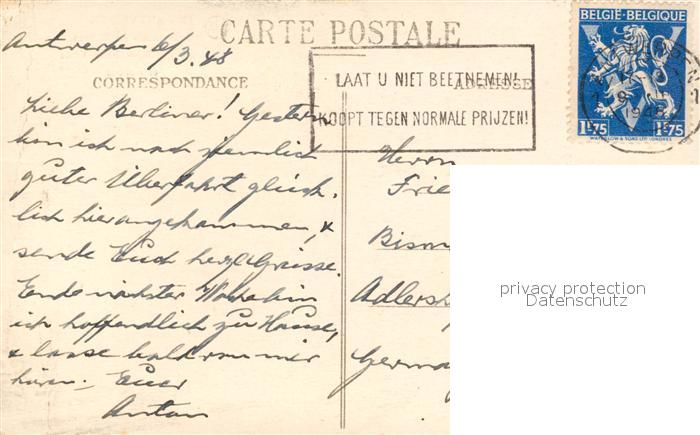 CARTE POSTALE
CORRESPONDANCE
ADRESSE
Antwerpen 6/3.48
Liebe Berliner! Gestern
bin ich nach ziemlich
guter Überfahrt glück-
lich hier angekommen, &
sende Euch herzl. Grüsse.
Ende nächster Woche bin
ich hoffendlich zu Hause,
& lasse bald von mir
hören. Euer
Anton
LAAT U NIET BEETNEMEN!
KOOPT TEGEN NORMALE PRIJZEN!
BELGIË-BELGIQUE
1F75 1F75
WATERLOW & SONS LTD. LONDRES
Herrn
Frie
Bism
Adlersh
Germa
privacy protection
Datenschutz